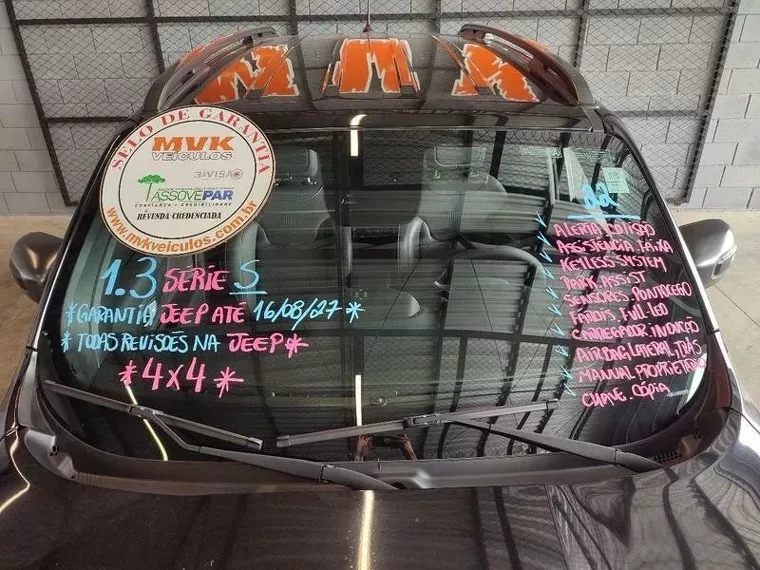 SELO DE GARANTIA
MVK
VEÍCULOS
3ªVISÃO
ASSOVEPAR
CONFIANÇA E CREDIBILIDADE
REVENDA CREDENCIADA
www.mvkveiculos.com.br
1.3 SERIE S
*GARANTIA JEEP ATÉ 16/08/27*
*TODAS REVISÕES NA JEEP*
*4x4*
22
ALERTA COLISÃO
ASSISTENCIA FAIXA
KEYLESS SYSTEM
PARK ASSIST
SENSORES PONTOCEGO
FAROIS FULL LED
CARREGADOR INDUÇÃO
AIRBAG LATERAL
MANUAL PROPRIETARIO
CHAVE CÓPIA